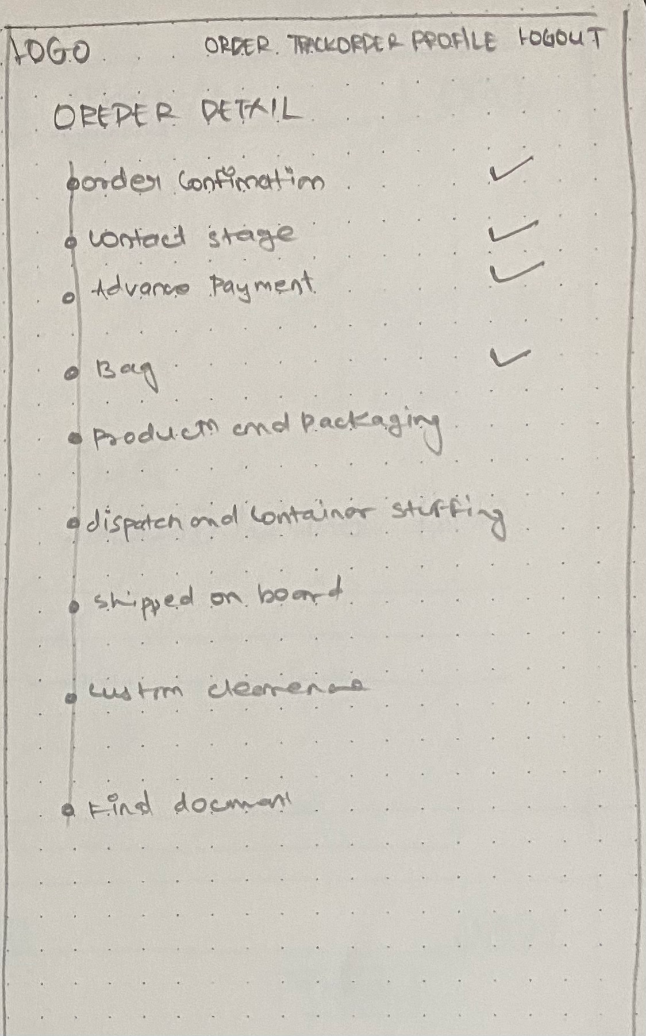 LOGO ORDER TRACKORDER PROFILE LOGOUT
OREDER DETAIL
order Confirmation
contact stage
Advance Payment
Bag
Products and Packaging
dispatch and Container stuffing
shipped on board
custom clearence
Find document